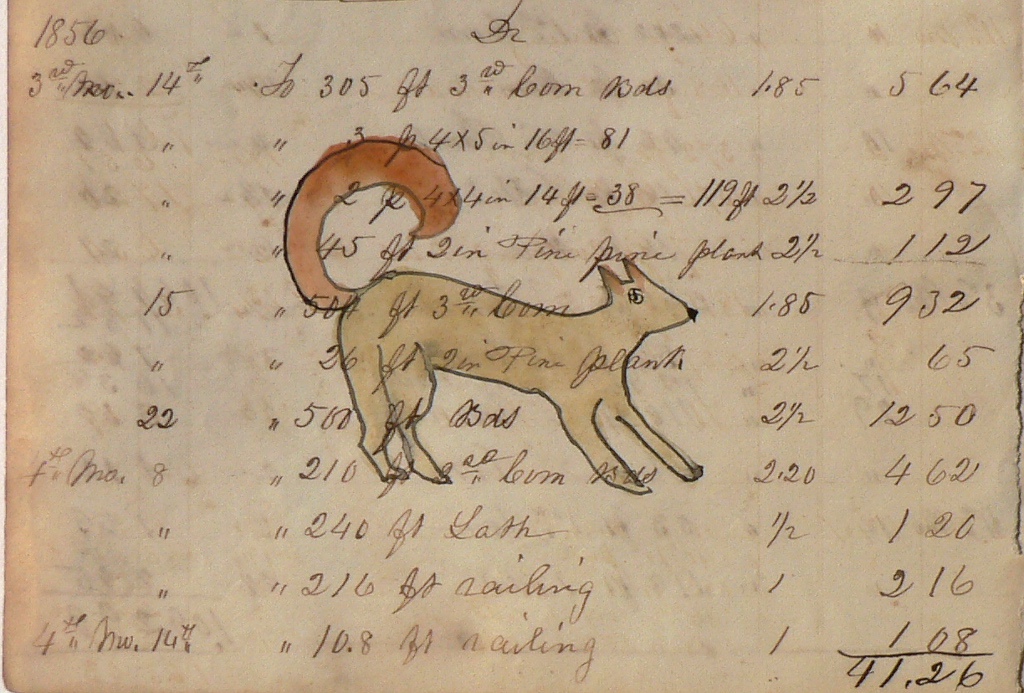 1856. Dr
3rd Mo. 14th To 305 ft 3rd Com Bds 1.85 5 64
" " 3 p 4x5 in 16ft = 81
" " 2 p 4x4 in 14ft = 38 = 119ft 2½ 2 97
" " 45 ft 2 in Pine pine plank 2½ 1 12
15 " 504 ft 3rd Com 1.85 9 32
" " 26 ft 2 in Pine plank 2½ 65
22 " 500 ft Bds 2½ 12 50
4th Mo. 8 " 210 ft 2nd Com Bds 2.20 4 62
" " 240 ft Lath ½ 1 20
" " 216 ft railing 1 2 16
4th Mo. 14th " 10.8 ft railing 1 1 08
41.26